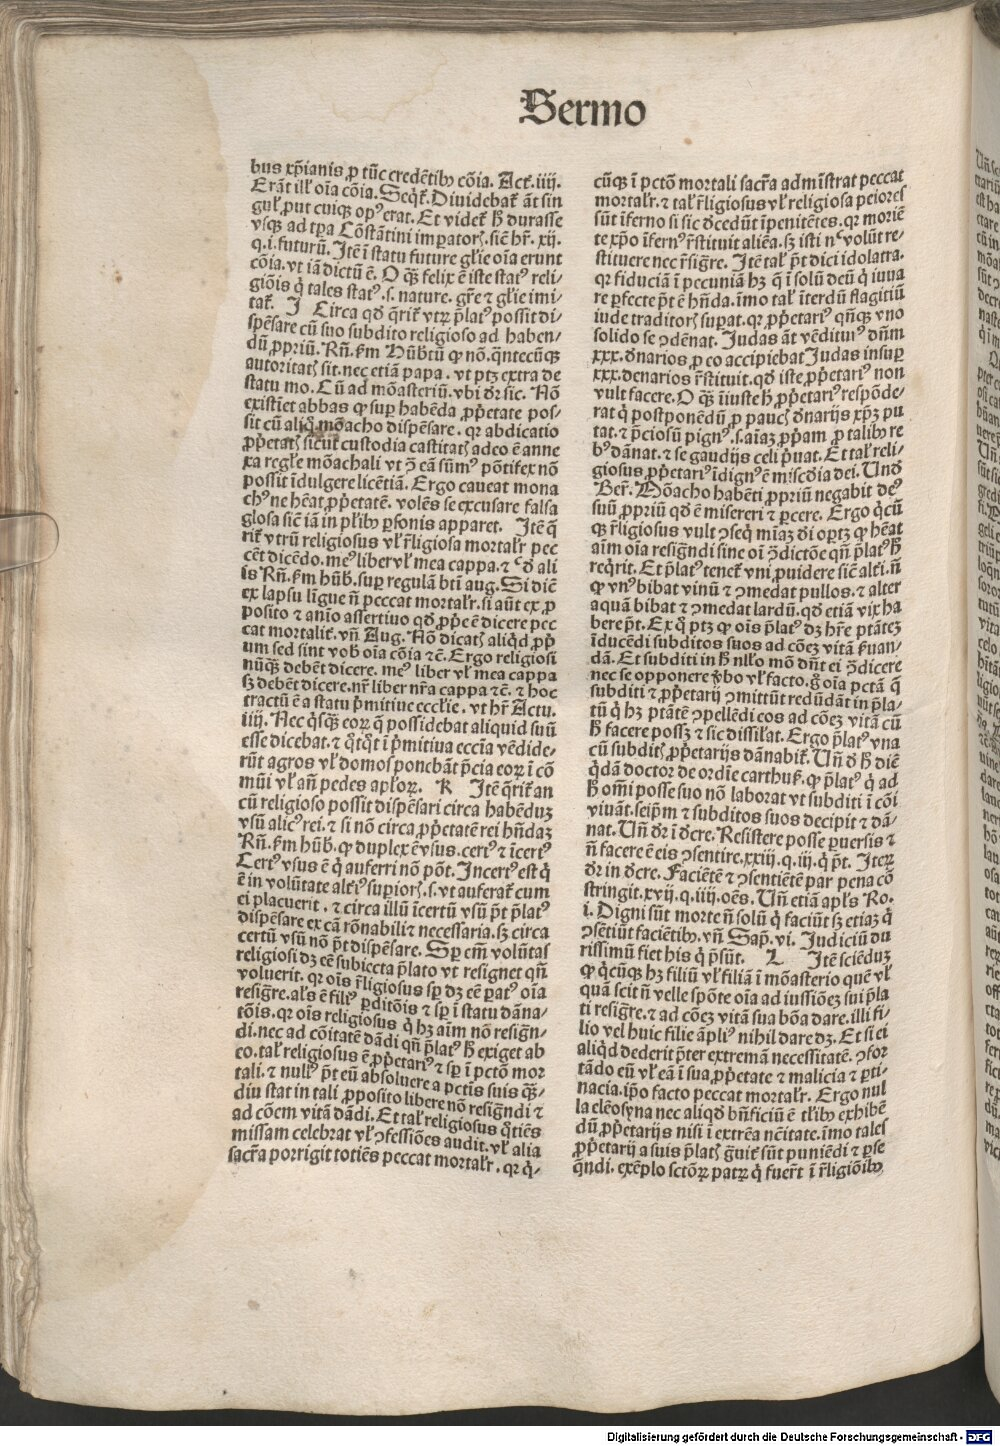 Sermo
bus xp̃ianis ꝓ tũc credẽtibꝰ cõia. Act̃. iiij.
Erãt ill̃ oĩa cõia. Seqt̃. Diuidebat̃ ãt sin
gul̃ ꝓut cuiqꝫ opꝰ erat. Et videt̃ ħ durasse
vsqꝫ ad tp̃a Cõstãtini imꝑatorꝭ. sic̃ hr̃. xij.
q. i. futurũ. Itẽ ĩ statu future gl̃ie oĩa erunt
cõia. vt iã dictũ ẽ. O qꝫ̃ felix ẽ iste statꝰ reli-
giõis q̇ tales statꝰ .s. nature. gr̃e ⁊ gl̃ie imi-
tat̃. I Circa qđ q̃rit̃ vtꝝ p̃latꝰ possit di-
spẽsare cũ suo subdito religioso ad haben-
dũ ꝓpriũ. Rñ. ẜm Hũb̃tũ ꝙ nõ. q̃ntecũqꝫ
autoritatꝭ sit. nec etiã papa. vt ptꝫ extra de
statu mo. Cũ ad mõasteriũ. vbi dr̃ sic. Nõ
existĩet abbas ꝙ suꝑ habẽda ꝓp̃etate pos-
sit cũ aliq̇ mõacho dispẽsare. qr abdicatio
ꝓp̃etatꝭ sicut custodia castitatꝭ adeo ẽ anne
xa regl̃e mõachali vt ꝯ̃ eã sũmꝰ põtifex nõ
possit ĩdulgere licẽtiã. Ergo caueat mona
chꝰ ne hẽat ꝓp̃etatẽ. volẽs se excusare falsa
glosa sic̃ iã in pl̃ibꝰ ꝑsonis apparet. Itẽ q̃
rit̃ vtrũ religiosus vl̃ r̃ligiosa mortal̃r pec
cẽt dicẽdo. meꝰ liber vl̃ mea cappa. ⁊ ̾đ ali
is Rñ. ẜm hũb̃. suꝑ regulã bt̃i aug. Si diẽ
ex lapsu lĩgue ñ peccat mortal̃r. si aũt ex ꝓ
posito ⁊ anĩo assertiuo qđ ꝓp̃e ẽ dicere pec
cat mortalit̃. vñ Aug. Nõ dicatꝭ aliqđ ꝓp̃
um sed sint vob̃ oĩa cõia ⁊c̃. Ergo religiosi
nũqꝫ̃ debẽt dicere. meꝰ liber vl̃ mea cappa
sꝫ debẽt dicere. nr̃ liber nr̃a cappa ⁊c̃. ⁊ hoc
tractũ ẽ a statu p̃mitiue eccl̃ie. vt hr̃ Actu.
iiij. Nec q̇sqꝫ̃ eoꝝ q̃ possidebat aliquid suũ
esse dicebat. ⁊ q̇tq̇t ĩ p̃mitiua eccĩa vẽdide-
rũt agros vl̃ domos ponebãt p̃cia eoꝝ ĩ cõ
mũi vl̃ añ pedes apl̃oꝝ. K Itẽ q̃rit̃ an
cũ religioso possit dispẽsari circa habẽduꝫ
vsũ alicꝰ rei. ⁊ si nõ circa ꝓp̃etatẽ rei hñdaꝫ
Rñ. ẜm hũb̃. ꝙ duplex ẽ vsus. certꝰ ⁊ ĩcertꝰ
Certꝰ vsus ẽ q̇ auferri nõ põt. Incertꝰ est q̇
ẽ in volũtate alt̃iꝰ suꝑiorꝭ .s. vt auferat̃ cum
ei placuerit. ⁊ circa illũ ĩcertũ vsũ p̃t p̃latꝰ
dispẽsare ex cã rõnabili ⁊ necessaria. sꝫ circa
certũ vsũ nõ p̃t dispẽsare. Sꝑ em̃ volũtas
religiosi dꝫ eẽ subiecta p̃lato vt resignet qñ
voluerit. qr oĩs r̃ligiosus sꝑ dꝫ eẽ ꝑatꝰ oĩa
resigr̃e. al̃s ẽ filiꝰ ꝑditõis ⁊ sꝑ ĩ statu dãna-
tõis. qr oĩs religiosus q̇ hꝫ aĩm nõ resigñ-
di. nec ad cõitatẽ dãdi qñ p̃latꝰ ħ exiget ab
eo. tal̃ religiosus ẽ ꝓp̃etariꝰ ⁊ sꝑ ĩ pctõ mor
tali. ⁊ nullꝰ p̃t eũ absoluere a pctĩs suis qꝫ̃-
diu stat in tali ꝓposito libere nõ resigñdi ⁊
ad cõem vitã dãdi. Et tal̃ religiosus q̇tiẽs
missam celebrat vl̃ ꝯfessiões audit. vl̃ alia
sacr̃a porrigit totiẽs peccat mortal̃r. qr q̇-
cũqꝫ ĩ pctõ mortali sacr̃a admĩstrat peccat
mortal̃r. ⁊ tal̃ r̃ligiosus vl̃ religiosa peiores
sũt ĩferno si sic đcedũt ĩpenitẽtes. qr moriẽ
te xp̃o ĩfernꝰ r̃stituit aliẽa. sꝫ isti nͨ volũt re-
stituere nec r̃sigr̃e. Itẽ tal̃ p̃t dici idolatra.
qr fiduciã ĩ pecuniã hꝫ q̃ ĩ solũ deũ q̇ iuua
re ꝑfecte p̃t ẽ hñda. ĩmo tal̃ ĩterdũ flagitiũ
iude traditorꝭ suꝑat. qr ꝓp̃etariꝰ qñqꝫ vno
solido se ꝯdẽnat. Judas ãt vẽdituꝰ dñm
xxx. đnarios ꝓ eo accipiebat Judas insuꝑ
xxx. denarios r̃stituit. qđ iste ꝓp̃etariꝰ non
vult facere. O qꝫ̃ ĩiuste ħ ꝓp̃etariꝰ respõde-
rat q̇ postponẽdũ ꝓ paucꝭ đnarijs xp̃ꝫ pu
tat. ⁊ p̃ciosũ pignꝰ .s. aĩaꝫ ꝓp̃am ꝓ talibꝰ re
bꝰ dãnat. ⁊ se gaudijs celi p̃uat. Et tal̃ reli-
giosus ꝓp̃etariꝰ ĩdignꝰ ẽ mĩscđia dei. Unđ
Ber̃. Mõacho habẽti ꝓpriũ negabit deꝰ
suũ ꝓpriũ qđ ẽ misereri ⁊ ꝑcere. Ergo q̇cũ
qꝫ r̃ligiosus vult ꝯseq̇ mĩaꝫ đi oꝑtꝫ ꝙ hẽat
aĩm oĩa resigñdi sine oĩ ꝯ̃dictõe qñ p̃latꝰ ħ
req̇rit. Et p̃latꝰ tenet̃ vni ꝓuidere sic̃ alt̃i. ñ
ꝙ vnꝰ bibat vinũ ⁊ ꝯmedat pullos. ⁊ alter
aquã bibat ⁊ ꝯmedat lardũ. qđ etiã vix ha
bere p̃t. Ex q̇ ptꝫ ꝙ oĩs p̃latꝰ dꝫ hr̃e ptãteꝫ
ĩducẽdi subditos suos ad cõeꝫ vitã ẜuan-
dã. Et subditi in ħ nl̃lo mõ dñt ei ꝯ̃dicere
nec se opponere ṽbo vl̃ facto. g̊ oĩa pctã q̃
subditi ⁊ ꝓp̃etarij ꝯmittũt redũdãt in p̃la-
tũ q̇ hꝫ ptãtẽ ꝯpellẽdi eos ad cõeꝫ vitã cũ
ħ facere possꝫ ⁊ sic dissil̃at. Ergo p̃latꝰ vna
cũ subditꝭ ꝓp̃etarijs dãnabit̃. Uñ đ ħ diẽ
q̇dã doctor de ordĩe carthuẜ. ꝙ p̃latꝰ q̇ ad
ħ om̃i posse suo nõ laborat vt subditi ĩ cõi
viuãt. seip̃m ⁊ subditos suos decipit ⁊ dã-
nat. Uñ dr̃ ĩ đcre. Resistere posse ꝑuersis ⁊
ñ facere ẽ eis ꝯsentire. xxiij. q. iij. q̇ p̃t. Iteꝝ
dr̃ in đcre. Faciẽtẽ ⁊ ꝯsentiẽtẽ par pena cõ
stringit. xvij. q. iiij. oẽs. Uñ etiã apl̃s Ro.
i. Digni sũt morte ñ solũ q̇ faciũt sꝫ etiaꝫ q̇
ꝯsẽtiũt faciẽtibꝰ. vñ Sap̃. vi. Judiciũ du
rissimũ fiet his q̇ p̃sũt. L Itẽ sciẽduꝫ
ꝙ q̇cũqꝫ hꝫ filiũ vl̃ filiã ĩ mõasterio quẽ vl̃
quã scit ñ velle spõte oĩa ad iussiõeꝫ sui p̃la
ti resigr̃e. ⁊ ad cõeꝫ vitã sua bõa dare. illi fi-
lio vel huic filie ãpliꝰ nihil dare dꝫ. Et si ei
aliqđ dederit p̃ter extremã necessitatẽ. ꝯfor
tãdo eũ vl̃ eã ĩ sua ꝓp̃etate ⁊ malicia ⁊ ꝑti-
nacia. ip̃o facto peccat mortal̃r. Ergo nul
la eleõsyna nec aliqđ bñficiũ ẽ tl̃ibꝰ exhibẽ
dũ ꝓp̃etarijs nisi ĩ extrẽa nc̃itate. ĩmo tales
ꝓp̃etarij a suis p̃latꝭ g̃uit̃ sũt puniẽdi ⁊ ꝑse
q̃ndi. exẽplo sctõꝝ patꝝ q̇ fuer̃t ĩ r̃ligiõibꝰ
Digitalisierung gefördert durch die Deutsche Forschungsgemeinschaft - DFG